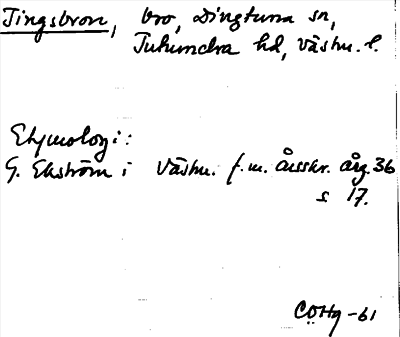 Tingsbron, bro, Dingtuna sn,
Tuhundra hd, Västm. l.
Etymologi:
G. Ekström i Västm. f.m. årsskr. årg. 36
s 17.
CÖHg -61